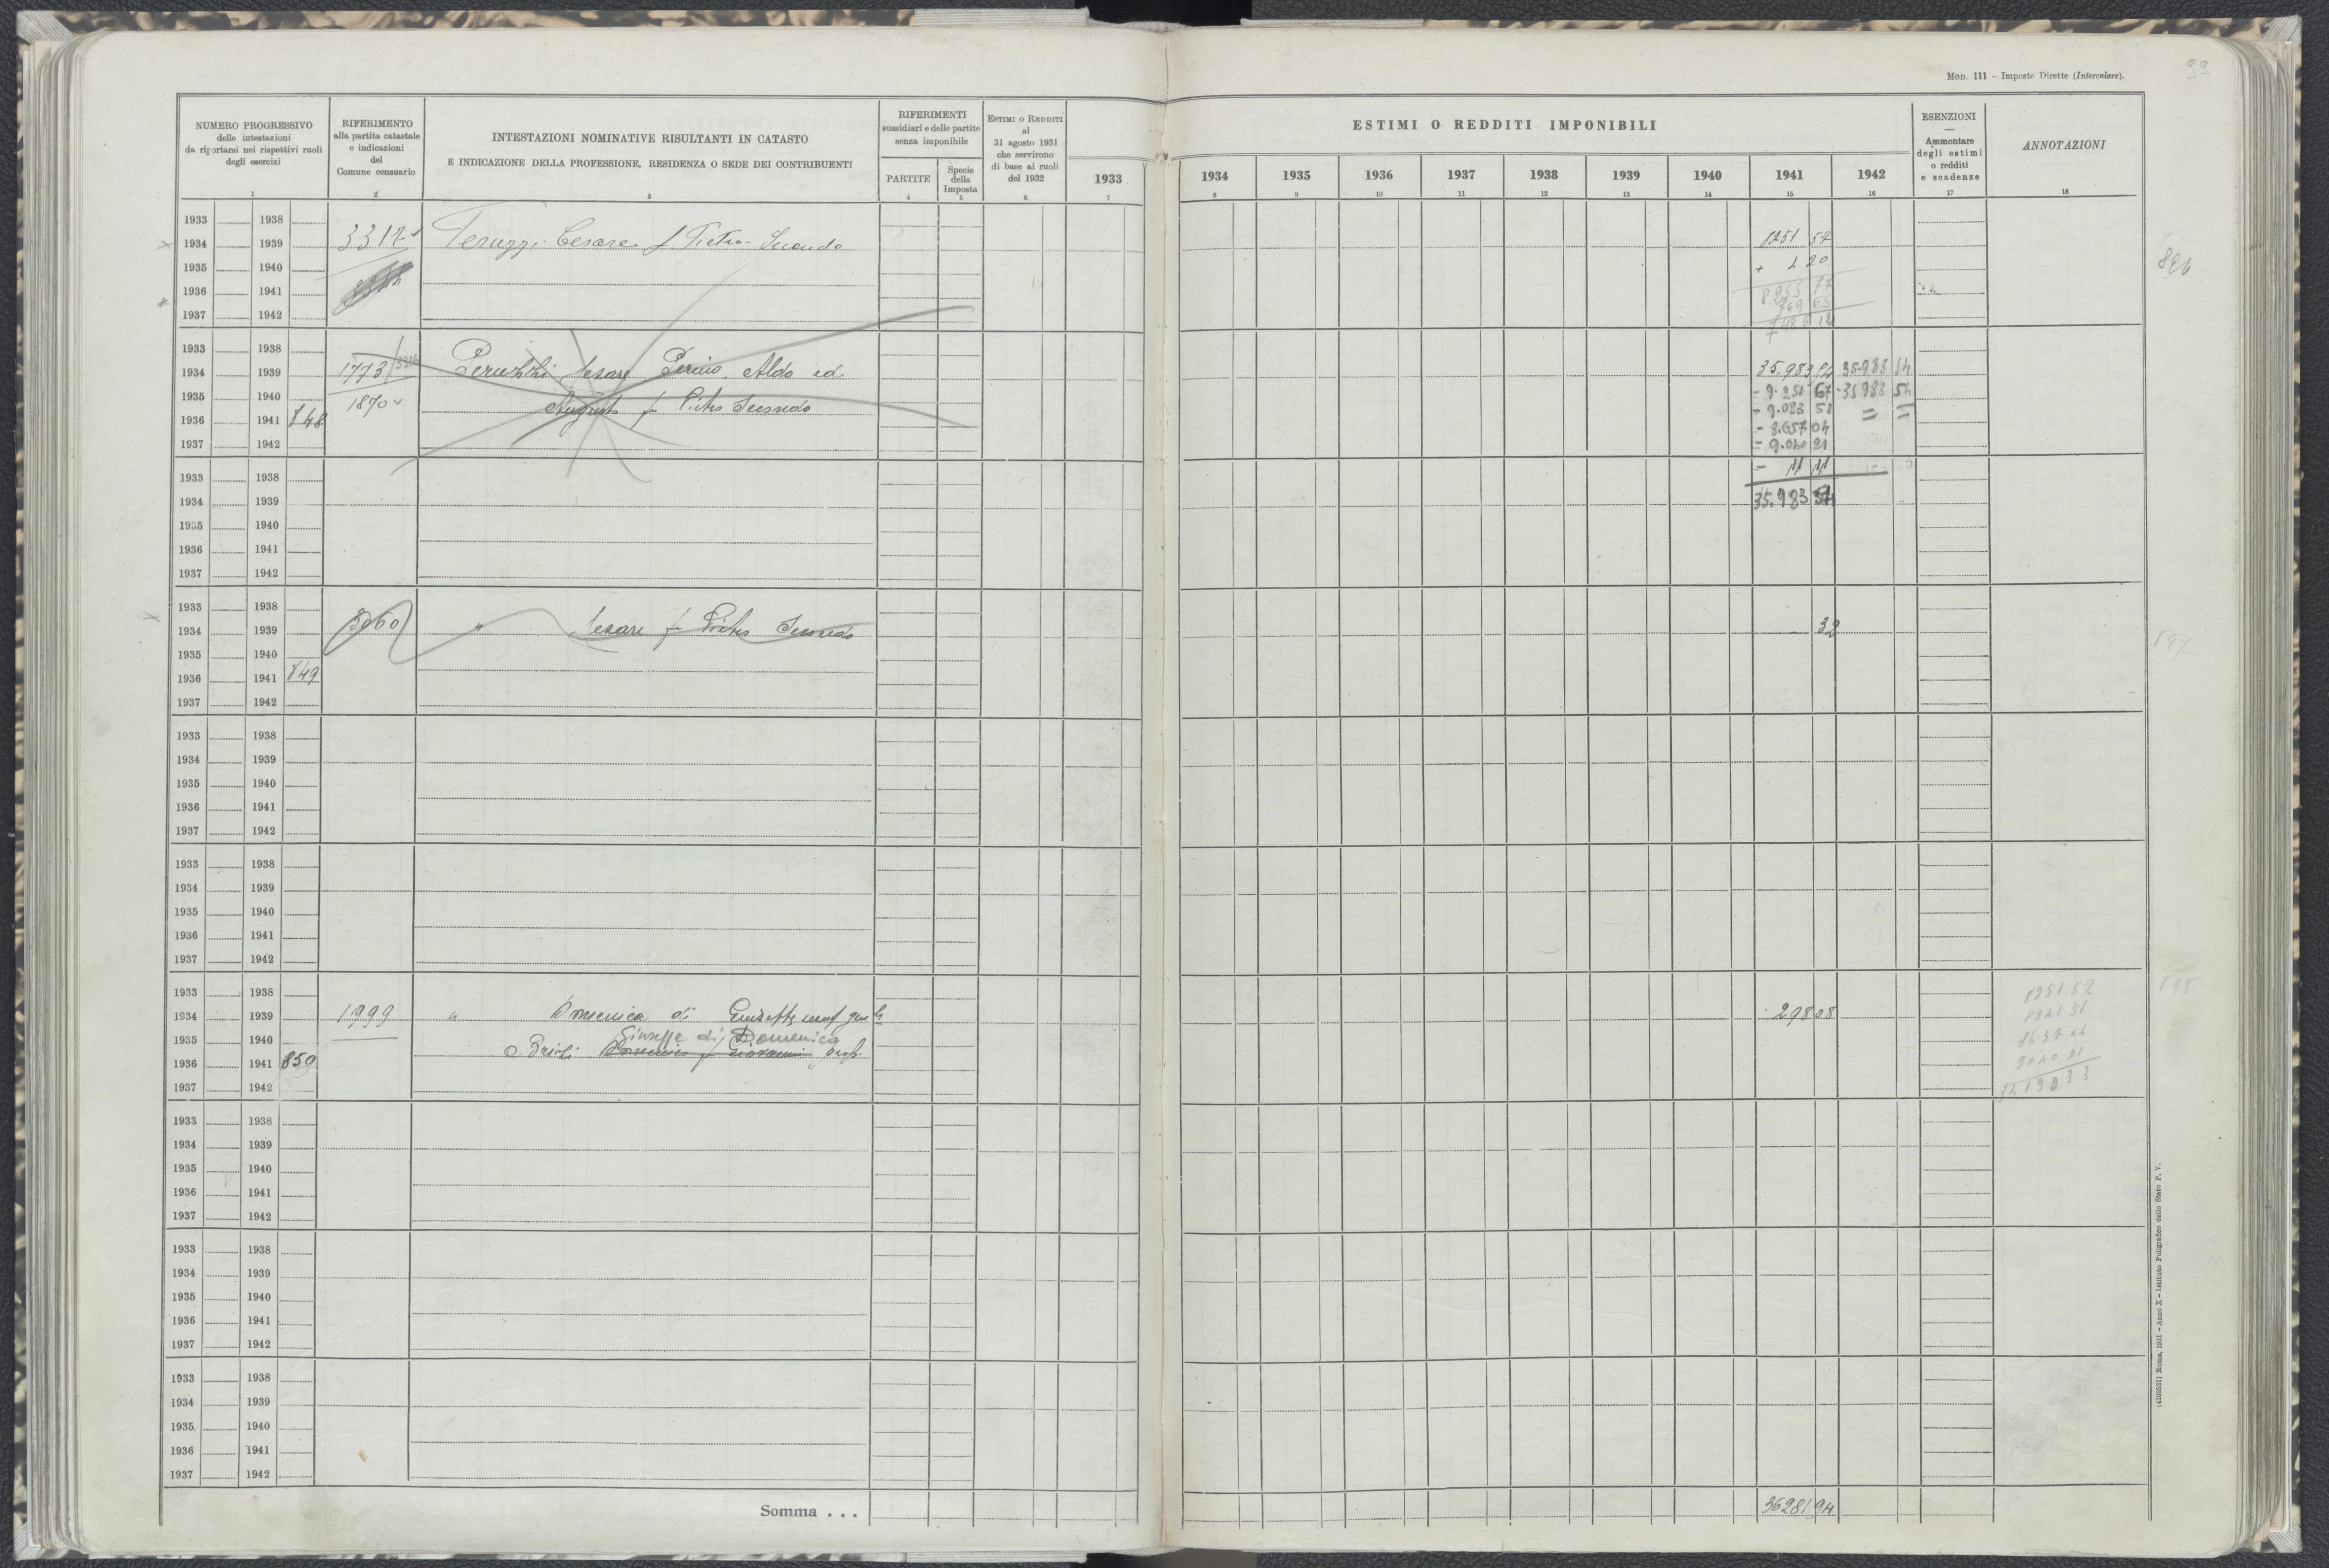 Mod. 111 – Imposte Dirette (Intercalare).
99
NUMERO PROGRESSIVO
delle intestazioni
da riportarsi nei rispettivi ruoli
degli esercizi
1
RIFERIMENTO
alla partita catastale
e indicazioni
del
Comune censuario
2
INTESTAZIONI NOMINATIVE RISULTANTI IN CATASTO
E INDICAZIONE DELLA PROFESSIONE, RESIDENZA O SEDE DEI CONTRIBUENTI
3
RIFERIMENTI
sussidiari e delle partite
senza imponibile
PARTITE
4
Specie
della
Imposta
5
Estimi o Redditi
al
31 agosto 1931
che servirono
di base ai ruoli
del 1932
6
1933
7
ESTIMI O REDDITI IMPONIBILI
1934 1935 1936 1937 1938 1939 1940 1941 1942
8 9 10 11 12 13 14 15 16
ESENZIONI
—
Ammontare
degli estimi
o redditi
e scadenze
17
ANNOTAZIONI
18
1933 1938
1934 1939 3312 Peruzzi Cesare f Pietro Secondo 8251 57
1935 1940 + 4 20
1936 1941
1937 1942
1933 1938
1934 1939 1773 Peruzzi Cesare Aldo ed 35.983 54 35.983 54
1935 1940 1870 Augusto fu Pietro Secondo - 9.251 67 - 35983 54
1936 1941 848 - 9.023 51 = =
1937 1942 - 8.657 04
- 9.040 21
1933 1938 - 11 11
1934 1939 35.983 54
1935 1940
1936 1941
1937 1942
1933 1938
1934 1939 3060 " Cesare fu Pietro Secondo 32
1935 1940
1936 1941 849
1937 1942
1933 1938
1934 1939
1935 1940
1936 1941
1937 1942
1933 1938
1934 1939
1935 1940
1936 1941
1937 1942
1933 1938
1934 1939 1999 " Domenica di 298 08
1935 1940 Giuseppe di Domenico
1936 1941 859 Giovanni prop.
1937 1942
1933 1938
1934 1939
1935 1940
1936 1941
1937 1942
1933 1938
1934 1939
1935 1940
1936 1941
1937 1942
1933 1938
1934 1939
1935 1940
1936 1941
1937 1942
Somma . . . 36281 94
(4103551) Roma, 1931 - Anno X - Istituto Poligrafico dello Stato P. V.